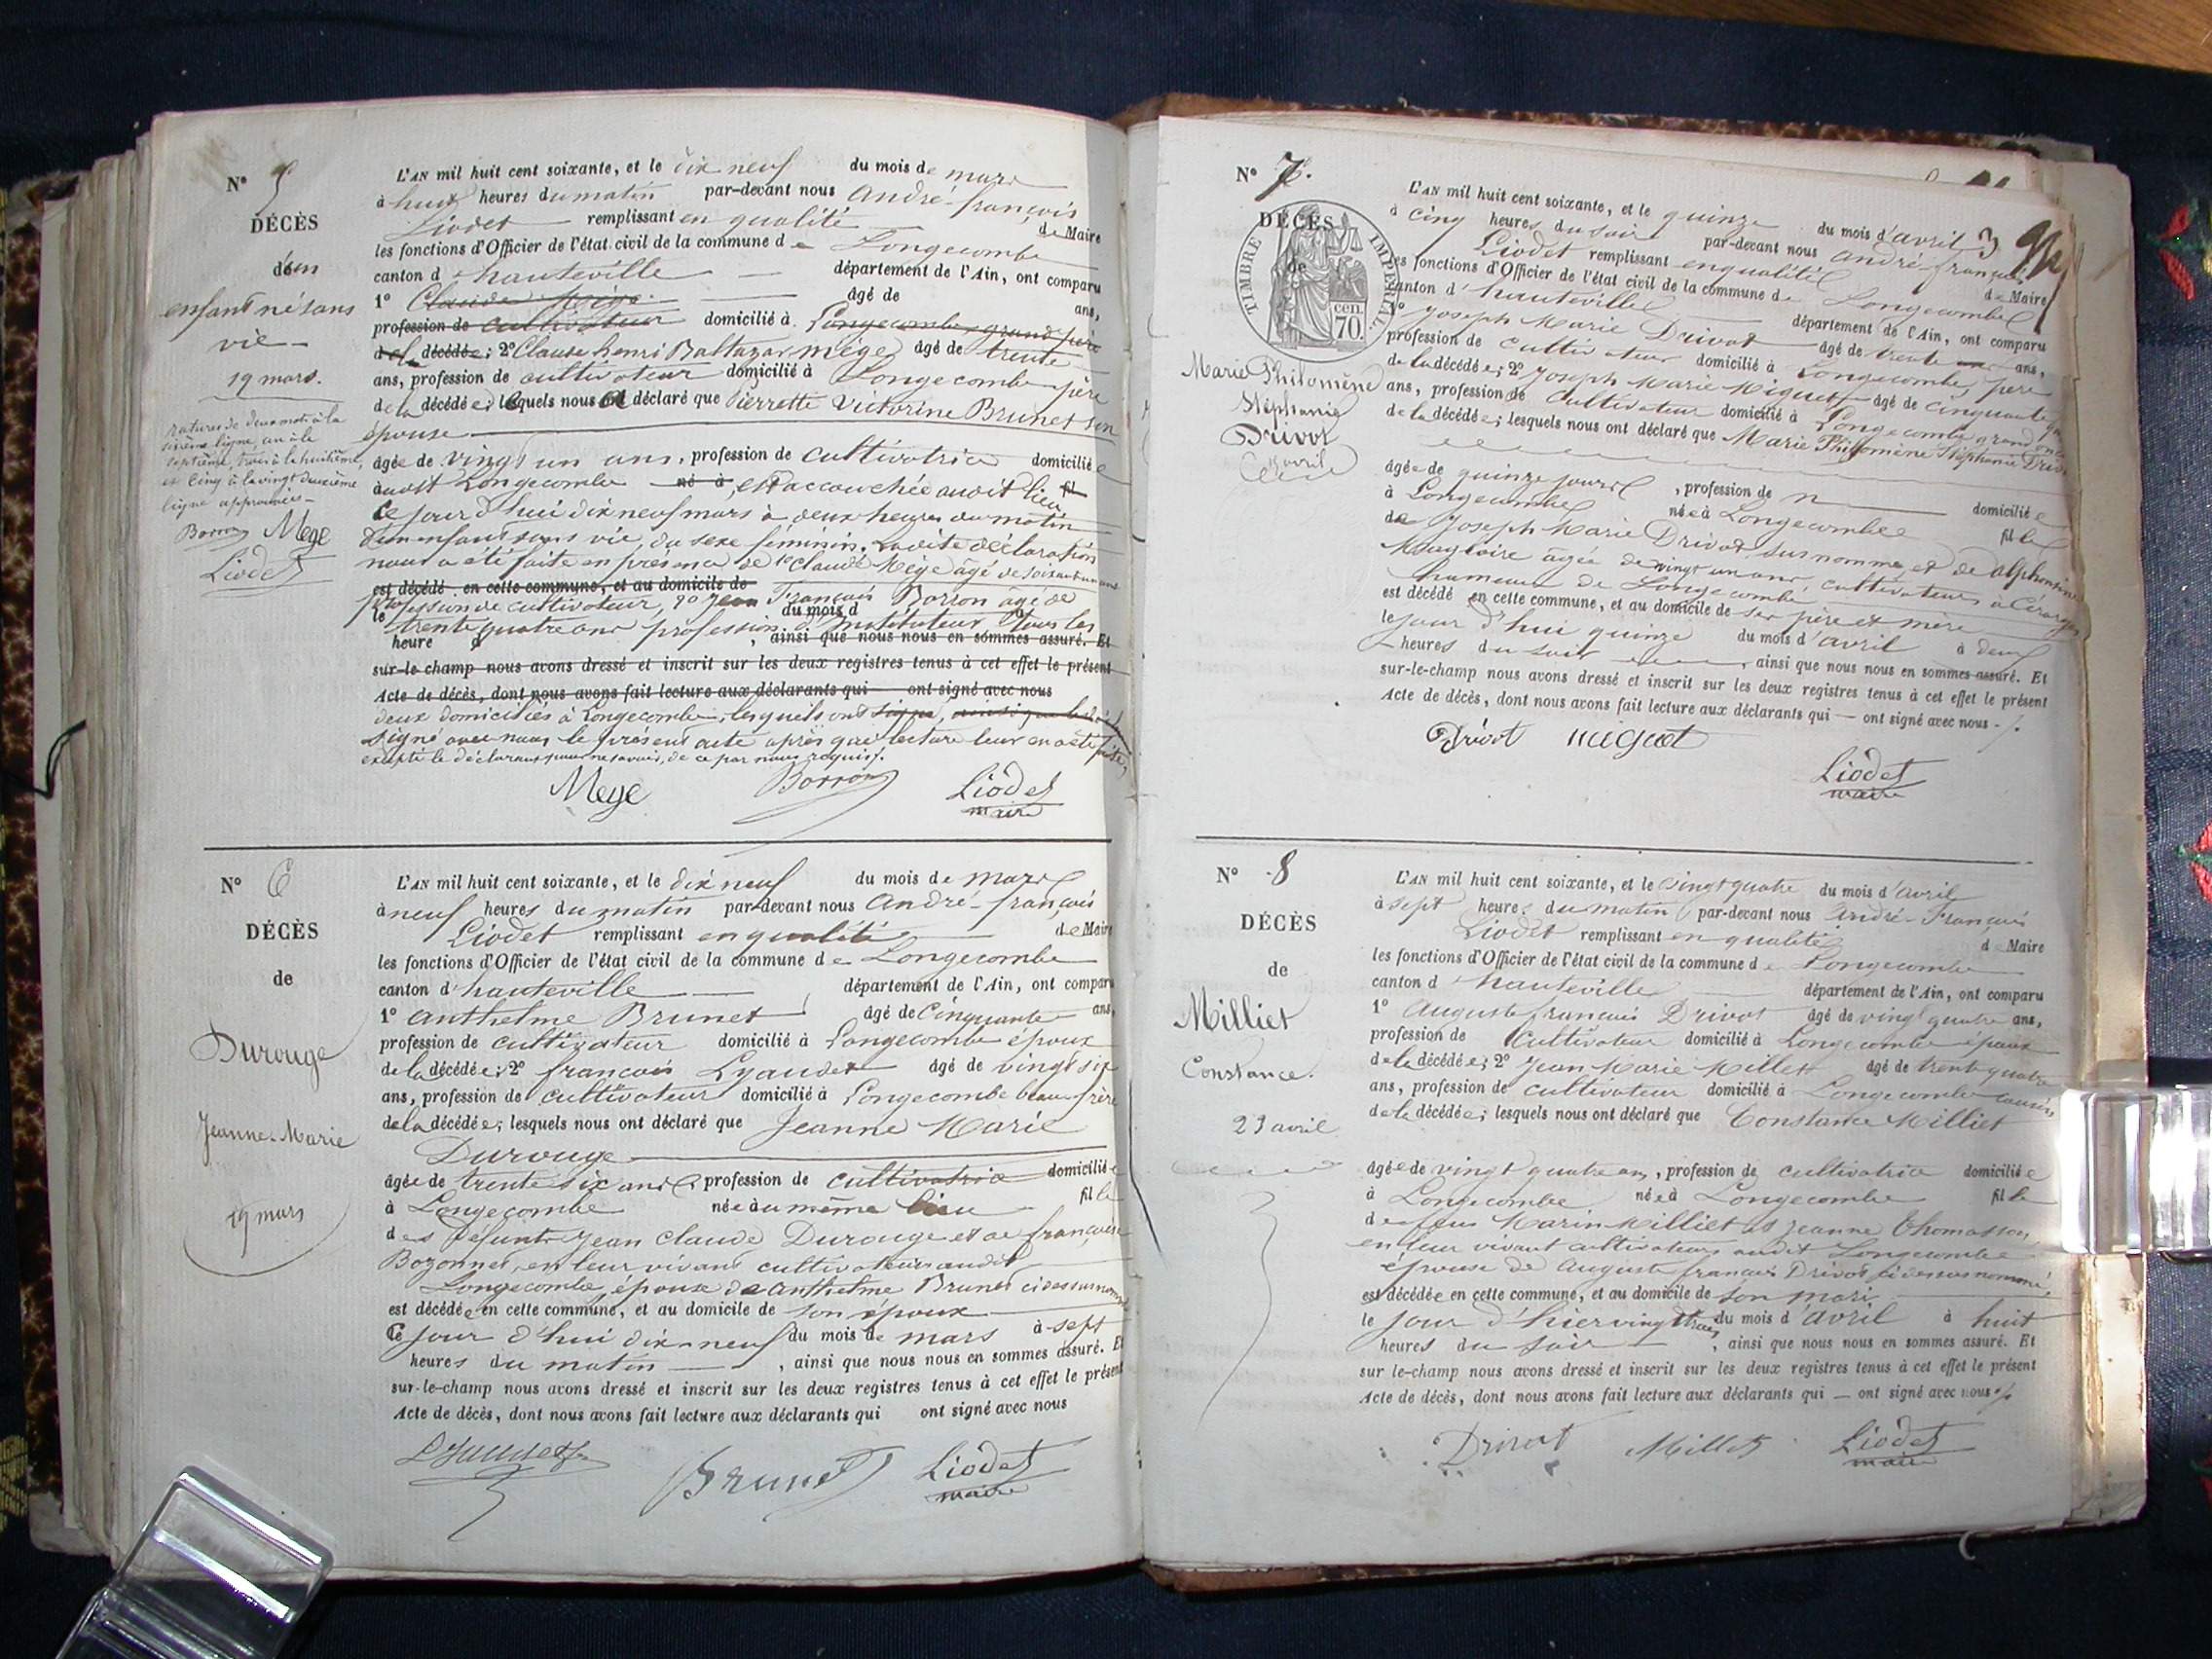 N° 5
DÉCÈS
d'un
enfant né sans
vie
19 mars.
ratures de deux mots à la
sixième ligne, un à la
septième, trois à la huitième,
et cinq à la vingt deuxième
ligne approuvées
Borron Mege
Liodet
L'AN mil huit cent soixante, et le dix neuf du mois de mars
à huit heures du matin par-devant nous André-françois
Liodet remplissant en qualité de Maire
les fonctions d'Officier de l'état civil de la commune de Longecombe
canton d'hauteville département de l'Ain, ont comparu
1° Claude Mège âgé de ans,
profession de cultivateur domicilié à Longecombe grand père
de la décédée; 2° Claude henri Baltazar mège âgé de trente
ans, profession de cultivateur domicilié à Longecombe père
de la décédée; lequels nous a déclaré que Pierrette Victorine Brunet son
épouse
âgée de vingt un ans, profession de cultivatrice domiciliée
audit Longecombe né à est accouchée audit lieu fil
Ce jour d'hui dix neuf mars à deux heures du matin
d'un enfant sans vie, du sexe féminin. Ladite déclaration
nous a été faite en présence de 1° Claude Mège âgé de soixante un ans
est décédé en cette commune, et au domicile de
profession de cultivateur, 2° Jean François Borron âgé de
le du mois d
trente quatre ans profession d'instituteur tous les
heure d , ainsi que nous nous en sommes assuré. Et
sur-le-champ nous avons dressé et inscrit sur les deux registres tenus à cet effet le présent
Acte de décès, dont nous avons fait lecture aux déclarants qui ont signé avec nous
deux domiciliés à Longecombe, lesquels ont signé,
signé avec nous le présent acte après que lecture leur en a été faite,
excepté le déclarant pour ne savoir, de ce par nous requis.
Mege Borron Liodet
maire
N° 6
DÉCÈS
de
Durouge
Jeanne-Marie
19 mars
L'AN mil huit cent soixante, et le dix neuf du mois de mars
à neuf heures du matin par-devant nous André-françois
Liodet remplissant en qualité de Maire
les fonctions d'Officier de l'état civil de la commune de Longecombe
canton d'hauteville département de l'Ain, ont comparu
1° anthelme Brunet âgé de Cinquante ans,
profession de cultivateur domicilié à Longecombe époux
de la décédée; 2° françois Lyaudet âgé de vingt six
ans, profession de cultivateur domicilié à Longecombe beau frère
de la décédée; lesquels nous ont déclaré que Jeanne Marie
Durouge
âgée de trente six ans profession de cultivatrice domiciliée
à Longecombe née au même lieu fille
des défunts Jean Claude Durouge et de françoise
Bozonnet, en leur vivant cultivateurs audit
Longecombe, épouse de anthelme Brunet ci dessus nommé
est décédée en cette commune, et au domicile de son époux
Ce jour d'hui dix neuf du mois de mars à sept
heures du matin , ainsi que nous nous en sommes assuré. Et
sur-le-champ nous avons dressé et inscrit sur les deux registres tenus à cet effet le présent
Acte de décès, dont nous avons fait lecture aux déclarants qui ont signé avec nous
Brunet Liodet
maire
N° 7.
DÉCÈS
de
TIMBRE IMPÉRIAL
70 cen.
Marie Philomène
Stéphanie
Drivot
15 avril
L'AN mil huit cent soixante, et le quinze du mois d'avril
à cinq heures du soir par-devant nous André-françois
Liodet remplissant en qualité de Maire
les fonctions d'Officier de l'état civil de la commune de Longecombe
canton d'hauteville département de l'Ain, ont comparu
1° Joseph Marie Drivot âgé de trente ans,
profession de cultivateur domicilié à Longecombe, père
de la décédée; 2° Joseph Marie Miguet âgé de cinquante
ans, profession de cultivateur domicilié à Longecombe grand oncle
de la décédée; lesquels nous ont déclaré que Marie Philomène Stéphanie Drivot
âgée de quinze jours, profession de domiciliée
à Longecombe née à Longecombe fille
de Joseph Marie Drivot susnommé et de alphonsine
âgée de vingt un ans, cultivateurs à
hameau de Longecombe
est décédé en cette commune, et au domicile de ses père et mère
le jour d'hui quinze du mois d'avril à deux
heures du soir , ainsi que nous nous en sommes assuré. Et
sur-le-champ nous avons dressé et inscrit sur les deux registres tenus à cet effet le présent
Acte de décès, dont nous avons fait lecture aux déclarants qui — ont signé avec nous
Drivot miguet
Liodet
maire
N° 8
DÉCÈS
de
Milliet
Constance.
23 avril
L'AN mil huit cent soixante, et le vingt quatre du mois d'avril
à sept heures du matin par-devant nous André-François
Liodet remplissant en qualité de Maire
les fonctions d'Officier de l'état civil de la commune de Longecombe
canton d'hauteville département de l'Ain, ont comparu
1° Auguste françois Drivot âgé de vingt quatre ans,
profession de Cultivateur domicilié à Longecombe époux
de la décédée; 2° Jean Marie Milliet âgé de trente quatre
ans, profession de cultivateur domicilié à Longecombe cousin
de la décédée; lesquels nous ont déclaré que Constance Milliet
âgée de vingt quatre ans, profession de cultivatrice domiciliée
à Longecombe née à Longecombe fille
de feus Marin Milliet et Jeanne Thomasson,
en leur vivant cultivateurs audit Longecombe
épouse de Auguste françois Drivot ci dessus nommé,
est décédée en cette commune, et au domicile de son mari
le jour d'hier vingt trois du mois d'avril à huit
heures du soir , ainsi que nous nous en sommes assuré. Et
sur le-champ nous avons dressé et inscrit sur les deux registres tenus à cet effet le présent
Acte de décès, dont nous avons fait lecture aux déclarants qui — ont signé avec nous
Drivot Milliet Liodet
maire